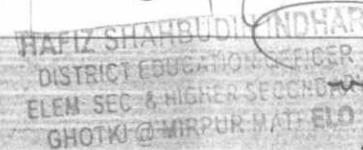 HAFIZ SHAHBUDIN INDHAR
DISTRICT EDUCATION OFFICER
ELEM SEC & HIGHER SECONDARY
GHOTKI @ MIRPUR MATHELO